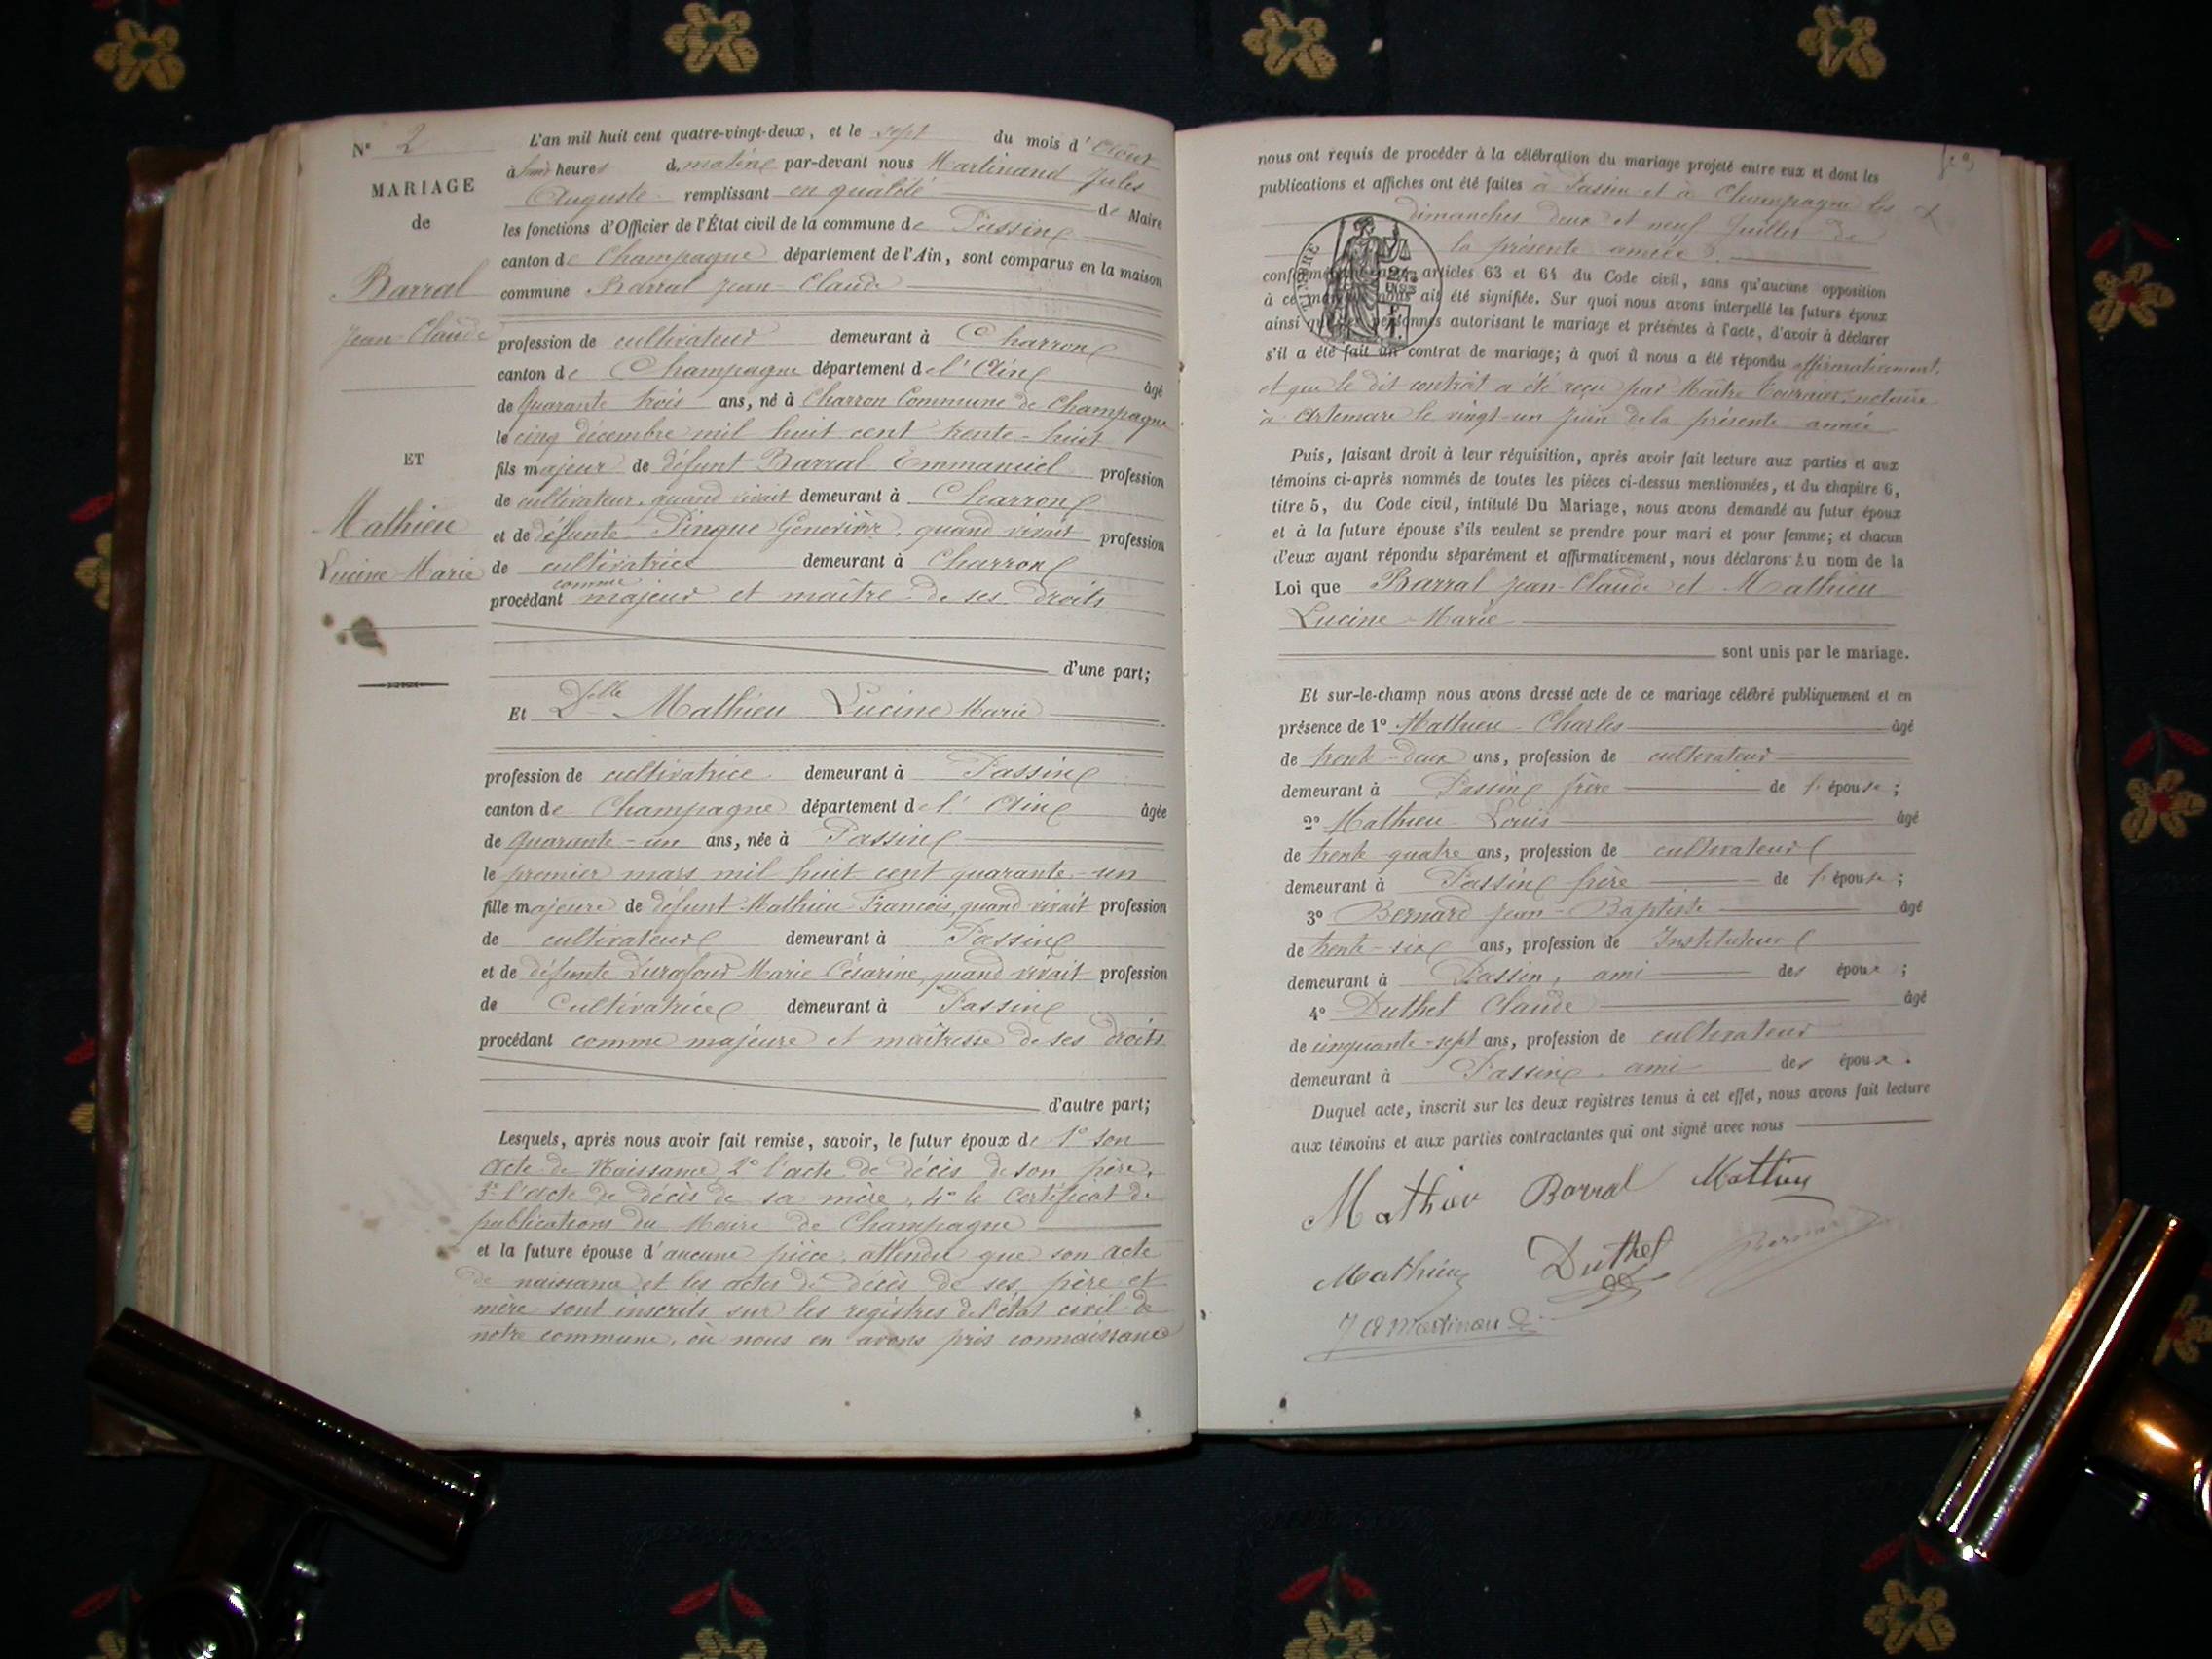 N° 2
MARIAGE
de
Barral
Jean-Claude
ET
Mathieu
Lucine Marie
L'an mil huit cent quatre-vingt-deux, et le sept du mois d'Août
à huit heures du matin par-devant nous Martinand Jules
Auguste remplissant en qualité de Maire
les fonctions d'Officier de l'État civil de la commune de Passin
canton de Champagne département de l'Ain, sont comparus en la maison
commune Barral Jean-Claude
profession de cultivateur demeurant à Charron
canton de Champagne département de l'Ain âgé
de Quarante trois ans, né à Charron Commune de Champagne
le cinq décembre mil huit cent trente-huit
fils majeur de défunt Barral Emmanuel profession
de cultivateur, quand vivait demeurant à Charron
et de défunte Pingue Genevière, quand vivait profession
de cultivatrice demeurant à Charron
comme
procédant majeur et maître de ses droits
d'une part;
Et Delle Mathieu Lucine Marie
profession de cultivatrice demeurant à Passin
canton de Champagne département de l'Ain âgée
de quarante-un ans, née à Passin
le premier mars mil huit cent quarante-un
fille majeure de défunt Mathieu François, quand vivait profession
de cultivateur demeurant à Passin
et de défunte Durafour Marie Césarine, quand vivait profession
de Cultivatrice demeurant à Passin
procédant comme majeure et maîtresse de ses droits
d'autre part;
Lesquels, après nous avoir fait remise, savoir, le futur époux de 1° son
Acte de Naissance, 2° l'acte de décès de son père,
3° l'acte de décès de sa mère, 4° le Certificat de
publications du Maire de Champagne
et la future épouse d'aucune pièce, attendu que son acte
de naissance et les actes de décès de ses père et
mère sont inscrits sur les registres de l'état civil de
notre commune, où nous en avons pris connaissance
nous ont requis de procéder à la célébration du mariage projeté entre eux et dont les
publications et affiches ont été faites à Passin et à Champagne les
dimanches deux et neuf Juillet de
la présente année
conformément aux articles 63 et 64 du Code civil, sans qu'aucune opposition
à ce mariage nous ait été signifiée. Sur quoi nous avons interpellé les futurs époux
ainsi que les personnes autorisant le mariage et présentes à l'acte, d'avoir à déclarer
s'il a été fait un contrat de mariage; à quoi il nous a été répondu affirmativement,
et que le dit contrat a été reçu par Maître Tournier, notaire
à Artemare le vingt-un Juin de la présente année
TIMBRE
Puis, faisant droit à leur réquisition, après avoir fait lecture aux parties et aux
témoins ci-après nommés de toutes les pièces ci-dessus mentionnées, et du chapitre 6,
titre 5, du Code civil, intitulé Du Mariage, nous avons demandé au futur époux
et à la future épouse s'ils veulent se prendre pour mari et pour femme; et chacun
d'eux ayant répondu séparément et affirmativement, nous déclarons au nom de la
Loi que Barral Jean-Claude et Mathieu
Lucine-Marie
sont unis par le mariage.
Et sur-le-champ nous avons dressé acte de ce mariage célébré publiquement et en
présence de 1° Mathieu Charles âgé
de trente-deux ans, profession de cultivateur
demeurant à Passin frère de l'épouse;
2° Mathieu Louis âgé
de trente quatre ans, profession de cultivateur
demeurant à Passin frère de l'épouse;
3° Bernard Jean-Baptiste âgé
de trente-six ans, profession de Instituteur
demeurant à Passin, ami des époux;
4° Duthel Claude âgé
de cinquante-sept ans, profession de cultivateur
demeurant à Passin, ami des époux.
Duquel acte, inscrit sur les deux registres tenus à cet effet, nous avons fait lecture
aux témoins et aux parties contractantes qui ont signé avec nous
Mathieu Barral Mathieu
Mathieu Duthel Bernard
J A Martinand